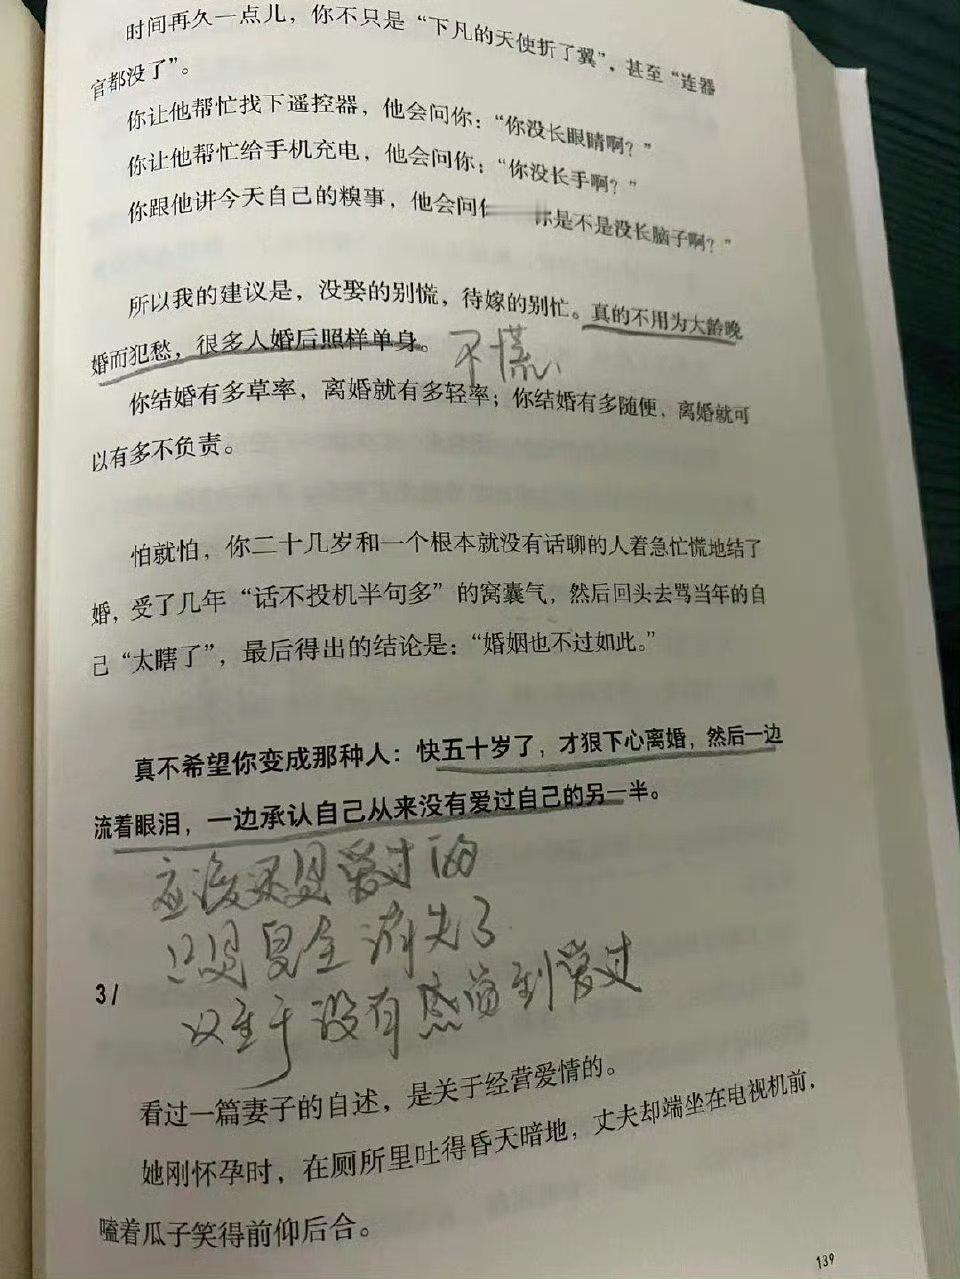 时间再久一点儿，你不只是“下凡的天使折了翼”，甚至“连器
官都没了”。
你让他帮忙找下遥控器，他会问你：“你没长眼睛啊？”
你让他帮忙给手机充电，他会问你：“你没长手啊？”
你跟他讲今天自己的糗事，他会问 你是不是没长脑子啊？”
所以我的建议是，没娶的别慌，待嫁的别忙。真的不用为大龄晚
婚而犯愁，很多人婚后照样单身。
不慌
你结婚有多草率，离婚就有多轻率；你结婚有多随便，离婚就可
以有多不负责。
怕就怕，你二十几岁和一个根本就没有话聊的人着急忙慌地结了
婚，受了几年“话不投机半句多”的窝囊气，然后回头去骂当年的自
己“太瞎了”，最后得出的结论是：“婚姻也不过如此。”
真不希望你变成那种人：快五十岁了，才狠下心离婚，然后一边
流着眼泪，一边承认自己从来没有爱过自己的另一半。
应该是爱过的
只是 全消失了
3/
以至于没有感觉到爱过
看过一篇妻子的自述，是关于经营爱情的。
她刚怀孕时，在厕所里吐得昏天暗地，丈夫却端坐在电视机前，
嗑着瓜子笑得前仰后合。
139